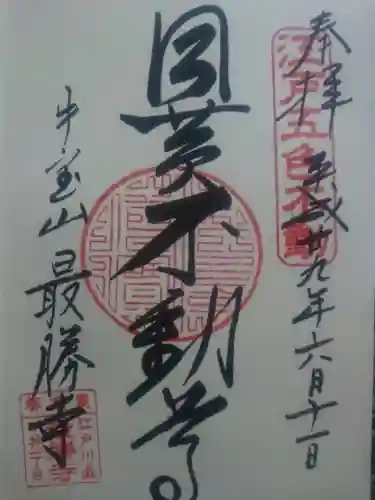 奉拝 平成廿九年六月十一日
江戸五色不動
目黄不動尊
牛宝山 最勝寺